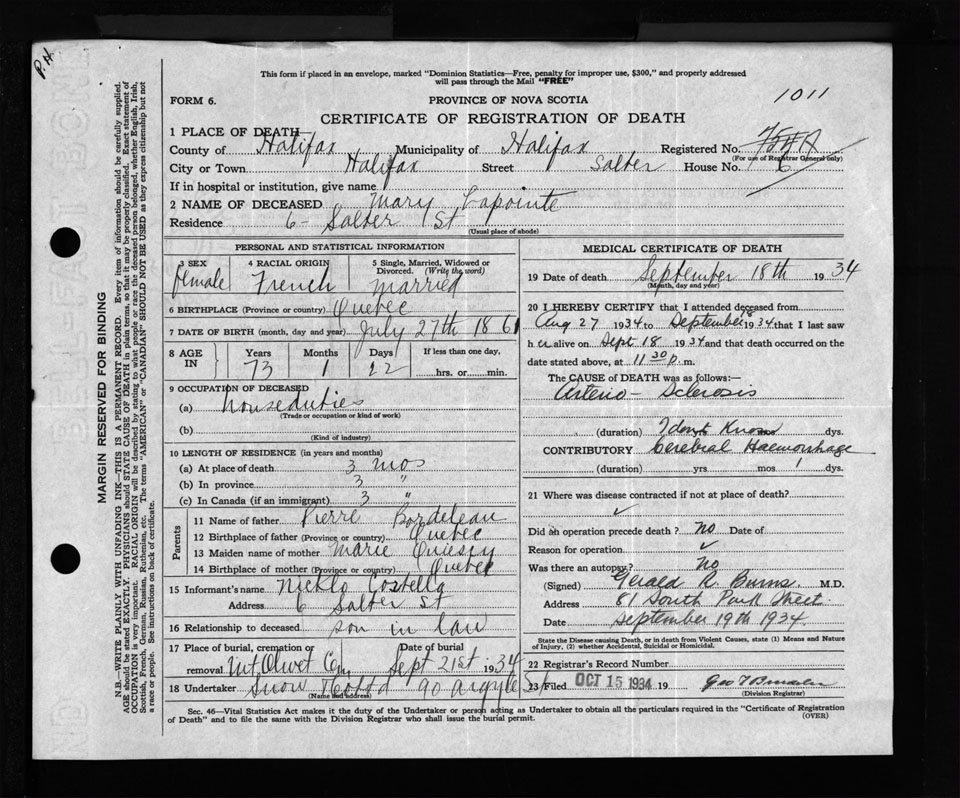 P.H.
This form if placed in an envelope, marked "Dominion Statistics—Free, penalty for improper use, $300," and properly addressed
will pass through the Mail "FREE"
FORM 6.
PROVINCE OF NOVA SCOTIA
1011
CERTIFICATE OF REGISTRATION OF DEATH
1 PLACE OF DEATH—
County of Halifax Municipality of Halifax Registered No.
(For use of Registrar General only)
City or Town Halifax Street Salter House No. 6
If in hospital or institution, give name
2 NAME OF DECEASED Mary Lapointe
Residence 6- Salter St
(Usual place of abode)
PERSONAL AND STATISTICAL INFORMATION
3 SEX
female
4 RACIAL ORIGIN
French
5 Single, Married, Widowed or
Divorced. (Write the word)
married
6 BIRTHPLACE (Province or country) Quebec
7 DATE OF BIRTH (month, day and year) July 27th 1861
8 AGE IN
Years Months Days If less than one day,
73 1 22 hrs. or min.
9 OCCUPATION OF DECEASED
(a) houseduties
(Trade or occupation or kind of work)
(b)
(Kind of industry)
10 LENGTH OF RESIDENCE (in years and months)
(a) At place of death 3 mos
(b) In province 3 "
(c) In Canada (if an immigrant) 3 "
Parents
11 Name of father Pierre Bordeleau
12 Birthplace of father (Province or country) Quebec
13 Maiden name of mother Marie
14 Birthplace of mother (Province or country) Quebec
15 Informant's name Nicklo Costella
Address 6 Salter St
16 Relationship to deceased son in law
17 Place of burial, cremation or removal Mt Olivet Cem
Date of burial
Sept 21st 1934
18 Undertaker Snow 90 Argyle St
(Name and address)
MEDICAL CERTIFICATE OF DEATH
19 Date of death September 18th 1934
(Month, day and year)
20 I HEREBY CERTIFY that I attended deceased from
Aug 27 1934 to September 18 1934 that I last saw
h er alive on Sept 18 1934 and that death occurred on the
date stated above, at 11 30 p. m.
The CAUSE OF DEATH was as follows:
Arterio-Sclerosis
(duration) I dont Know dys.
CONTRIBUTORY Cerebral Haemorrhage
(duration) yrs mos 1 dys.
21 Where was disease contracted if not at place of death?
✓
Did an operation precede death? no Date of
Reason for operation ✓
Was there an autopsy? no
(Signed) Gerald R. Burns. M.D.
Address 81 South Park Street
Date September 19th 1934
State the Disease causing Death, or in death from Violent Causes, state (1) Means and Nature
of Injury, (2) whether Accidental, Suicidal or Homicidal.
22 Registrar's Record Number
23 Filed OCT 15 1934 19
(Division Registrar)
Sec. 46—Vital Statistics Act makes it the duty of the Undertaker or person acting as Undertaker to obtain all the particulars required in the "Certificate of Registration
of Death" and to file the same with the Division Registrar who shall issue the burial permit.
(OVER)
MARGIN RESERVED FOR BINDING
N.B.—WRITE PLAINLY WITH UNFADING INK—THIS IS A PERMANENT RECORD. Every item of information should be carefully supplied.
AGE should be stated EXACTLY. PHYSICIANS should STATE CAUSE OF DEATH in plain terms, so that it may be properly classified. Exact statement of
OCCUPATION is very important. RACIAL ORIGIN will be described by stating to what people or race the deceased person belonged, whether English, Irish,
Scottish, French, German, Russian, Ruthenian, etc. The terms "AMERICAN" or "CANADIAN" SHOULD NOT BE USED as they express citizenship but not
a race or people. See instructions on back of certificate.